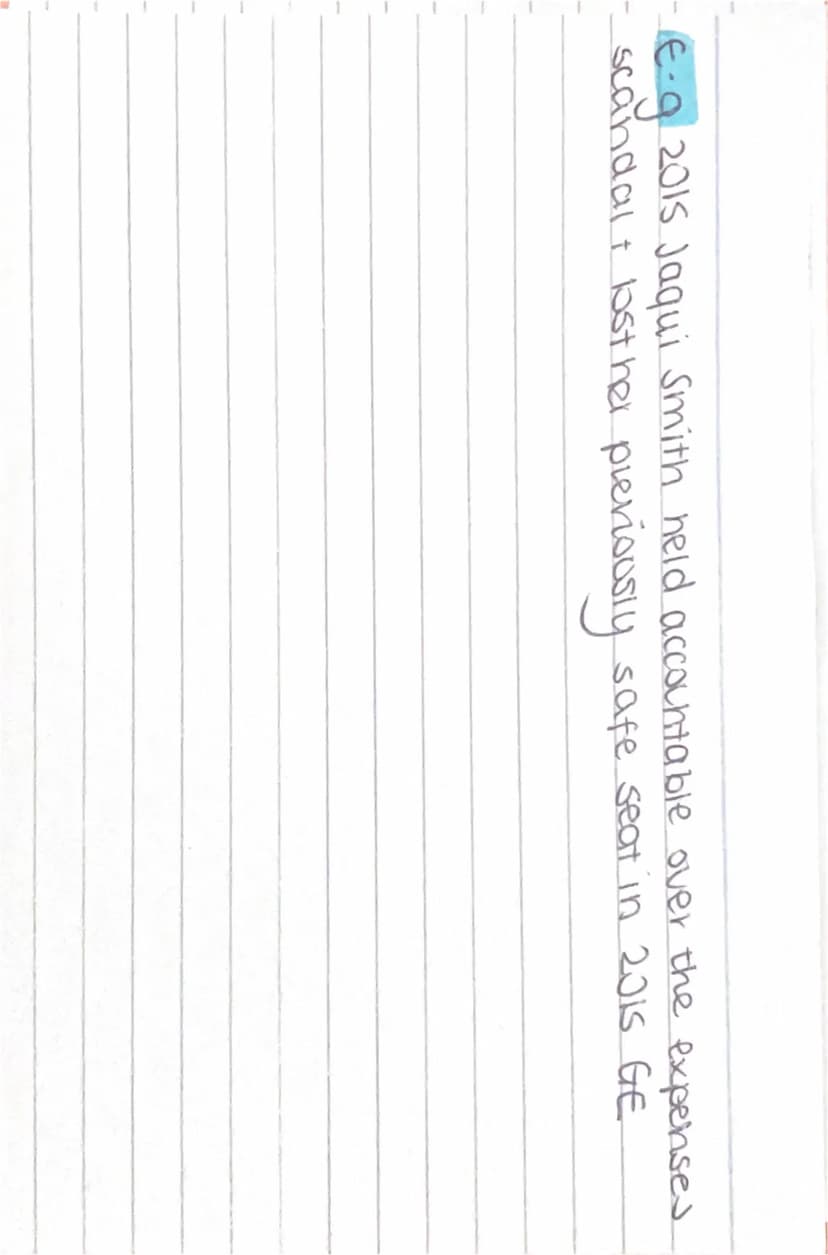 E.g 2015 Jaqui Smith held accountable over the expenses
scandal + lost her previously safe seat in 2015 GE